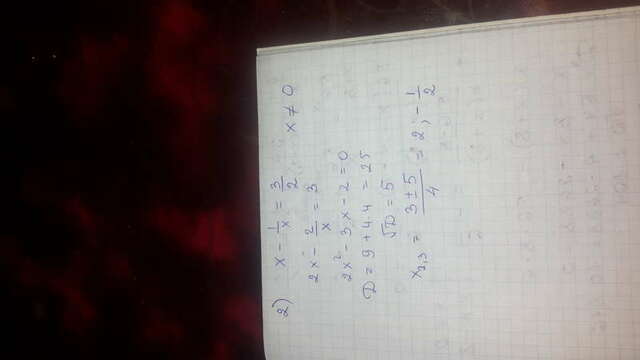 2) x - 1/x = 3/2 x ≠ 0
2x - 2/x = 3
2x² - 3x - 2 = 0
D = 9 + 4·4 = 25
√D = 5
x₂,₃ = (3 ± 5)/4 = 2; -1/2